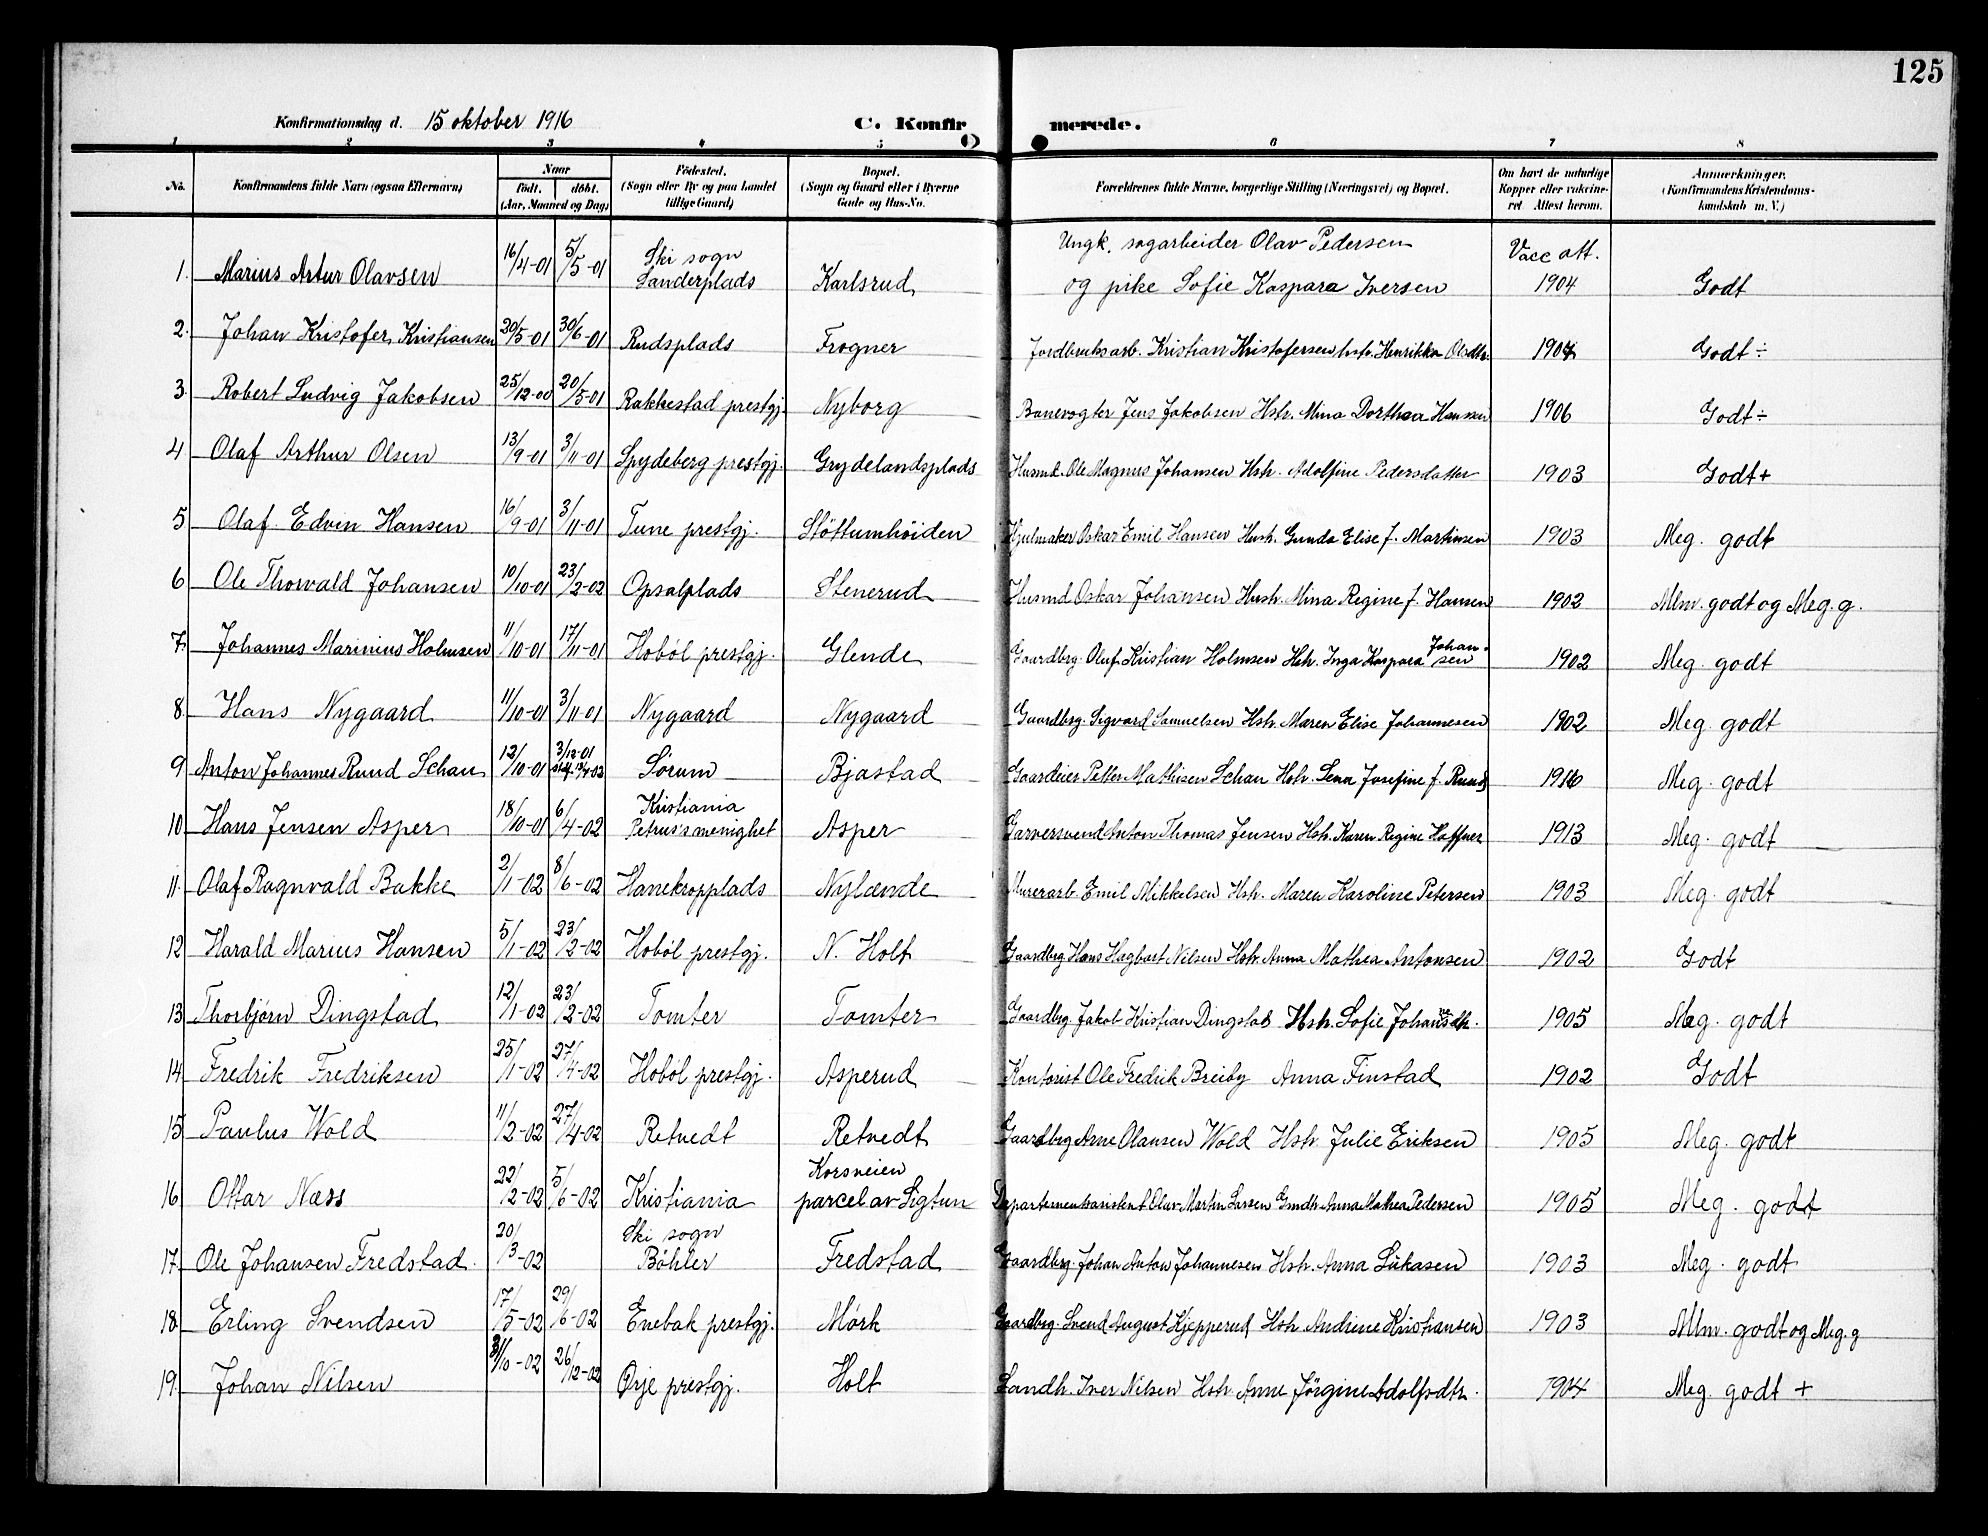 125
Konfirmationsdag d. 15 oktober 1916 C. Konfirmerede.
1 2 3 4 5 6 7 8
No. Konfirmandens fulde Navn (ogsaa Efternavn) Naar født. døbt. (Aar, Maaned og Dag) Fødested. (Sogn eller By og paa Landet tillige Gaard) Bopæl. (Sogn og Gaard eller i Byerne Gade og Hus-No. Forældrenes fulde Navne, borgerlige Stilling (Næringsvei) og Bopæl. Om havt de naturlige Kopper eller vakcineret. Attest herom. Anmerkninger. (Konfirmandens Kristendomskundskab m. V.)
1. Marius Artur Olavsen 16/4-01 5/5-01 Ski sogn Sanderplads Karlsrud Ungk. sagarbeider Olav Pedersen og pike Sofie Kaspara Iversen Vacc att. 1904 Godt
2. Johan Kristofer Kristiansen 20/5-01 30/6-01 Rudsplads Frogner Jordbruksarb. Kristian Kristofersen hstr. Henrikka Olsdtr. 1904 Godt ÷
3. Robert Ludvig Jakobsen 25/12-00 20/5-01 Rakkestad prestgj. Nyborg Banevogter Jens Jakobsen Hstr. Mina Dorthea Hansen 1906 Godt ÷
4 Olaf Arthur Olsen 13/9-01 3/11-01 Spydeberg prestgj. Grydelandsplads Husmd. Ole Magnus Johansen Hstr. Adolfine Pedersdatter 1903 Godt +
5 Olaf Edvin Hansen 16/9-01 3/11-01 Tune prestgj. Støttumhøiden Hjulmaker Oskar Emil Hansen Hustr. Gunda Elise f. Martinsen 1903 Meg. godt
6 Ole Thorvald Johansen 10/10-01 23/2-02 Opsalplads Stenerud Husmd Oskar Johansen Hustr. Mina Regine f. Hansen 1902 Mlm. godt og Meg. g.
7. Johannes Marinius Holmsen 11/10-01 17/11-01 Hobøl prestgj. Glende Gaardbrg. Oluf Kristian Holmsen Hstr. Inga Kaspara Johansen 1902 Meg. godt
8. Hans Nygaard 11/10-01 3/11-01 Nygaard Nygaard Gaardbrg. Sigvard Samuelsen Hstr. Maren Elise Johannesen 1902 Meg. godt
9 Anton Johannes Ruud Schau 12/10-01 3/12-01 Sørum Bjastad Gaardeier Petter Mathisen Schau Hstr. Lena Josefine f. Ruud 1916 Meg. godt
10 Hans Jensen Asper 18/10-01 6/4-02 Kristiania Petrus's menighet Asper Garversvend Anton Thomas Jensen Hstr. Karen Regine Haffner 1913 Meg. godt
11. Olaf Ragnvald Bakke 2/1-02 8/6-02 Hanekropplads Nylænde Murerarb. Emil Mikkelsen Hstr. Maren Karoline Petersen 1903 Meg. godt
12 Harald Marius Hansen 5/1-02 23/2-02 Hobøl prestgj. N. Holt Gaardbrg Hans Hagbart Nilsen Hstr. Anna Mathea Antonsen 1902 Godt
13 Thorbjørn Dingstad 12/1-02 23/2-02 Tomter Tomter Gaardbrg. Jakob Kristian Dingstad Hstr. Sofie Johansdtr. 1905 Meg. godt
14 Fredrik Fredriksen 25/1-02 27/4-02 Hobøl prestgj. Asperud Kontorist Ole Fredrik Breiby Anna Finstad 1902 Godt
15 Paulus Wold 11/2-02 27/4-02 Retvedt Retvedt Gaardbrg Arne Olausen Wold Hstr. Julie Eriksen 1905 Meg. godt
16 Ottar Næss 22/2-02 5/6-02 Kristiania Korsveien parcel av Sigtun Departementsasistent Olav Martin Larsen Anna Mathea Pedersen 1905 Meg. godt
17. Ole Johansen Fredstad. 20/3-02 Ski sogn Bøhler Fredstad Gaardbrg. Johan Anton Johannesen Hstr. Anna Lukasen 1903 Meg. godt
18 Erling Svendsen 17/5-02 29/6-02 Enebak prestgj. Mørk Gaardbrg. Svend August Kjepperud Hstr. Andrine Kristiansen 1903 Mlm. godt og Meg. g
19. Johan Nilsen 31/10-02 26/12-02 Ørje prestgj. Holt Landh. Iver Nilsen Hstr. Anne Jørgine Adolfsdtr. 1904 Meg. godt +